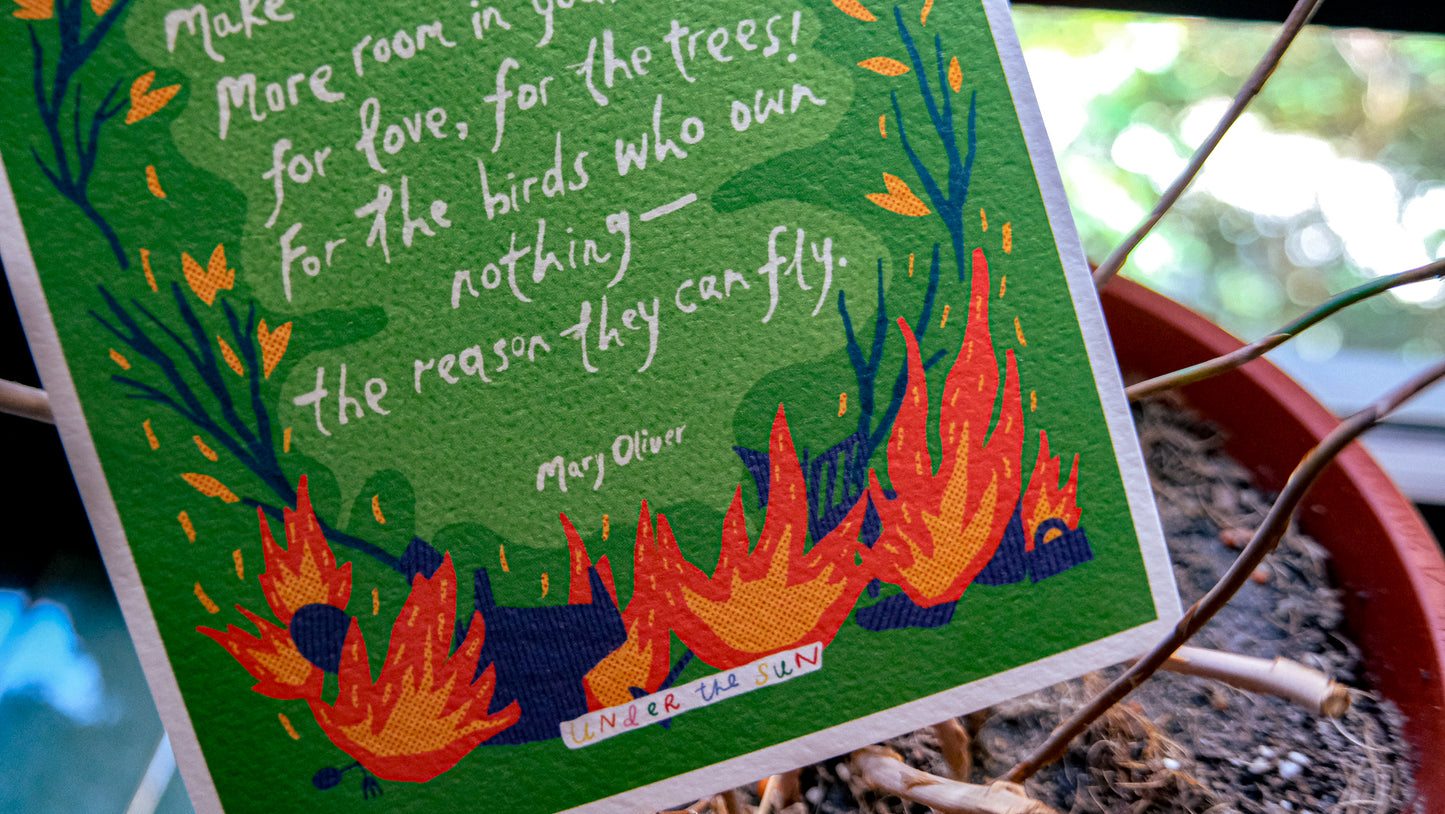 Make
More room in your
for love, for the trees!
For the birds who own
nothing—
the reason they can fly.
Mary Oliver
UNdeR the SuN